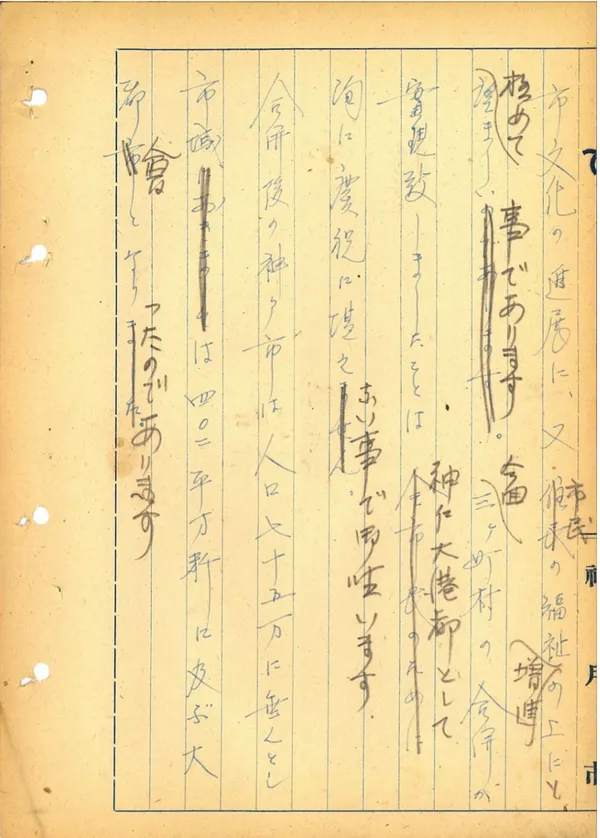 神戸市
市文化の進展に、又住民の福祉の上に
市民
増進
極めて
事であります
今回
望ましいのであります。三ヶ町村の合併が
大港都として
實現致しましたことは全市民のために
ない事で御座います
洵に慶祝に堪えません
合併後の神戸市は人口七十五万に垂んとし
市域は四〇二平方粁に及ぶ大
会
ったのであります
都市となりました